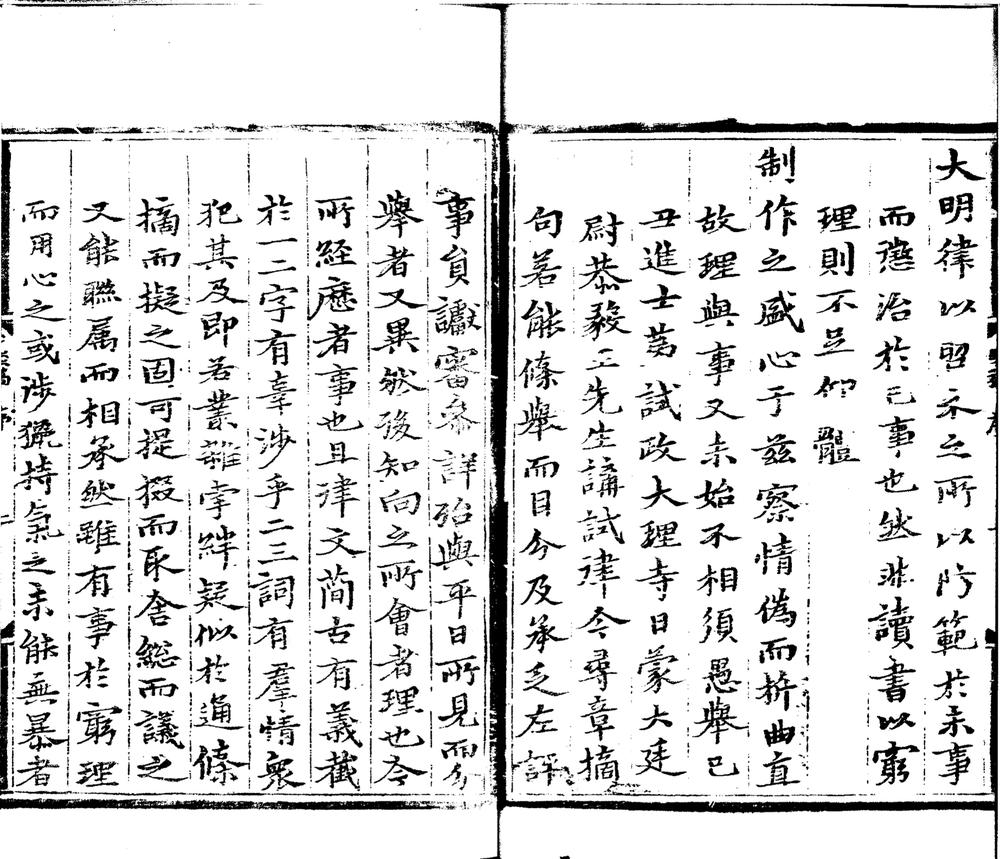 大明律以昭示之所以防範於未事
而懲治於已事也然非讀書以窮
理則不足仰體
制作之盛心于茲察情偽而折曲直
故理與事又未始不相須愚舉己
丑進士第試政大理寺日蒙大廷
尉恭毅王先生講試律令尋章摘
句若能條舉而目分及承乏左評
事員讞審參詳殆與平日所見而
舉者又異然後知向之所會者理也今
所經歷者事也且律文簡古有義截
於一二字有辜涉乎二三詞有羣情衆
犯其及即若業雜字絆疑似於通條
摘而擬之固可提掇而取舍總而議之
又能聯属而相承然雖有事於窮理
而用心之或涉獵持氣之未能無暴者